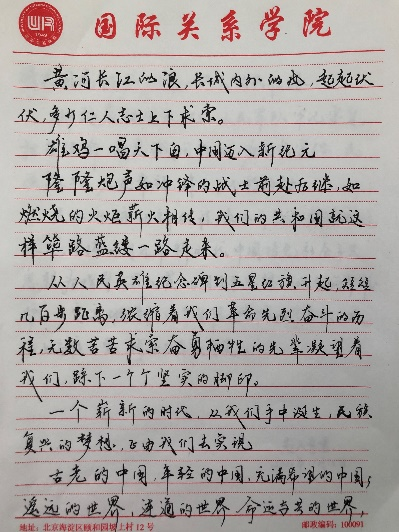 国际关系学院
黄河长江的浪，长城内外的风，起起伏
伏，多少仁人志士上下求索。
雄鸡一唱天下白，中国迈入新纪元
隆隆炮声如冲锋的战士前赴后继，如
燃烧的火炬薪火相传，我们的共和国就这
样筚路蓝缕一路走来。
从人民英雄纪念碑到五星红旗升起，短短
几百步距离，浓缩着我们革命先烈奋斗的历
程，无数苦苦求索奋勇牺牲的先辈凝望着
我们，踩下一个个坚实的脚印。
一个崭新的时代，从我们手中诞生，民族
复兴的梦想，正由我们去实现
古老的中国，年轻的中国，充满希望的中国，
遥远的世界，连通的世界，命运与共的世界，
地址：北京海淀区颐和园坡上村12号 邮政编码：100091